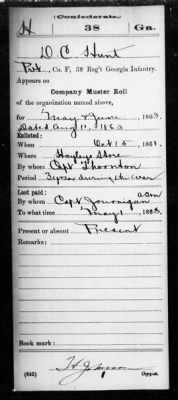 (Confederate.)
H 38 Ga.
D. C. Hunt
Pvt., Co. F, 38 Reg't Georgia Infantry.
Appears on
Company Muster Roll
of the organization named above,
for May & June 1863.
Dated Aug 11, 1863
Enlisted:
When Oct 15, 1861.
Where Hayley's Store
By whom Capt Thornton
Period 3 years or during the war
Last paid:
By whom Capt Journigan
To what time May 1, 1863.
Present or absent Present
Remarks:
Book mark:
(642) Copyist.